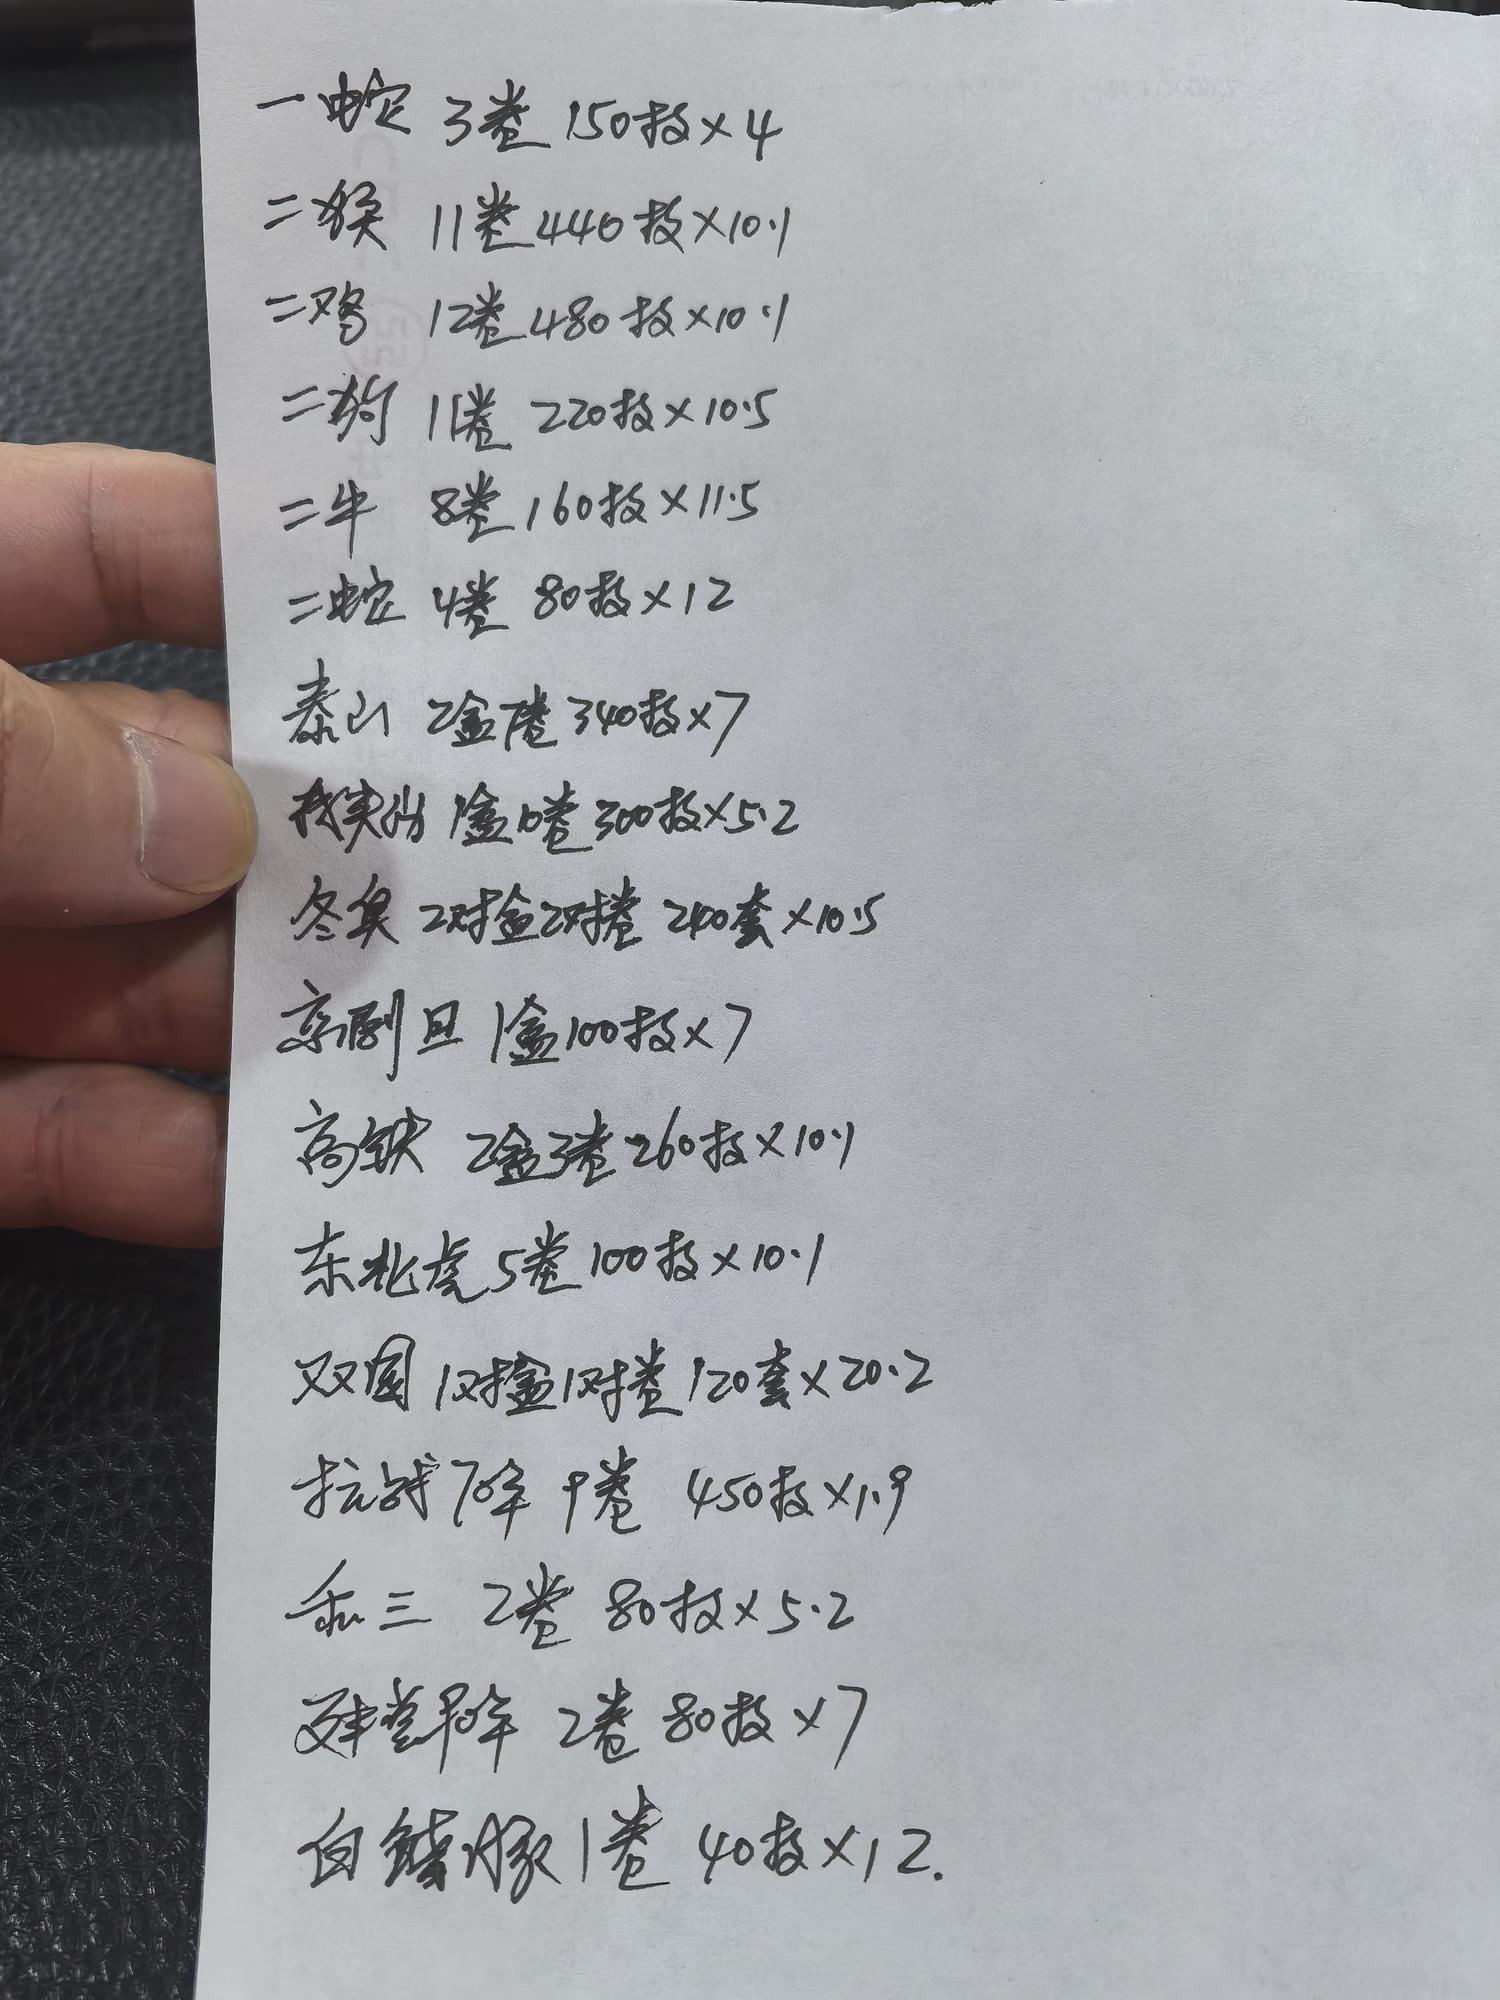 一蛇 3卷 150枚×4
二猴 11卷 440枚×10.1
二鸡 12卷 480枚×10.1
二狗 11卷 220枚×10.5
二牛 8卷 160枚×11.5
二蛇 4卷 80枚×12
泰山 2盒7卷 340枚×7
武夷山 1盒10卷 300枚×5.2
冬奥 2对盒2对卷 240套×10.5
京剧旦 1盒100枚×7
高铁 2盒3卷 260枚×10.1
东北虎 5卷 100枚×10.1
双国 1对盒1对卷 120套×20.2
抗战70年 9卷 450枚×1.9
和三 2卷 80枚×5.2
2卷 80枚×7
白鳍豚 1卷 40枚×12.